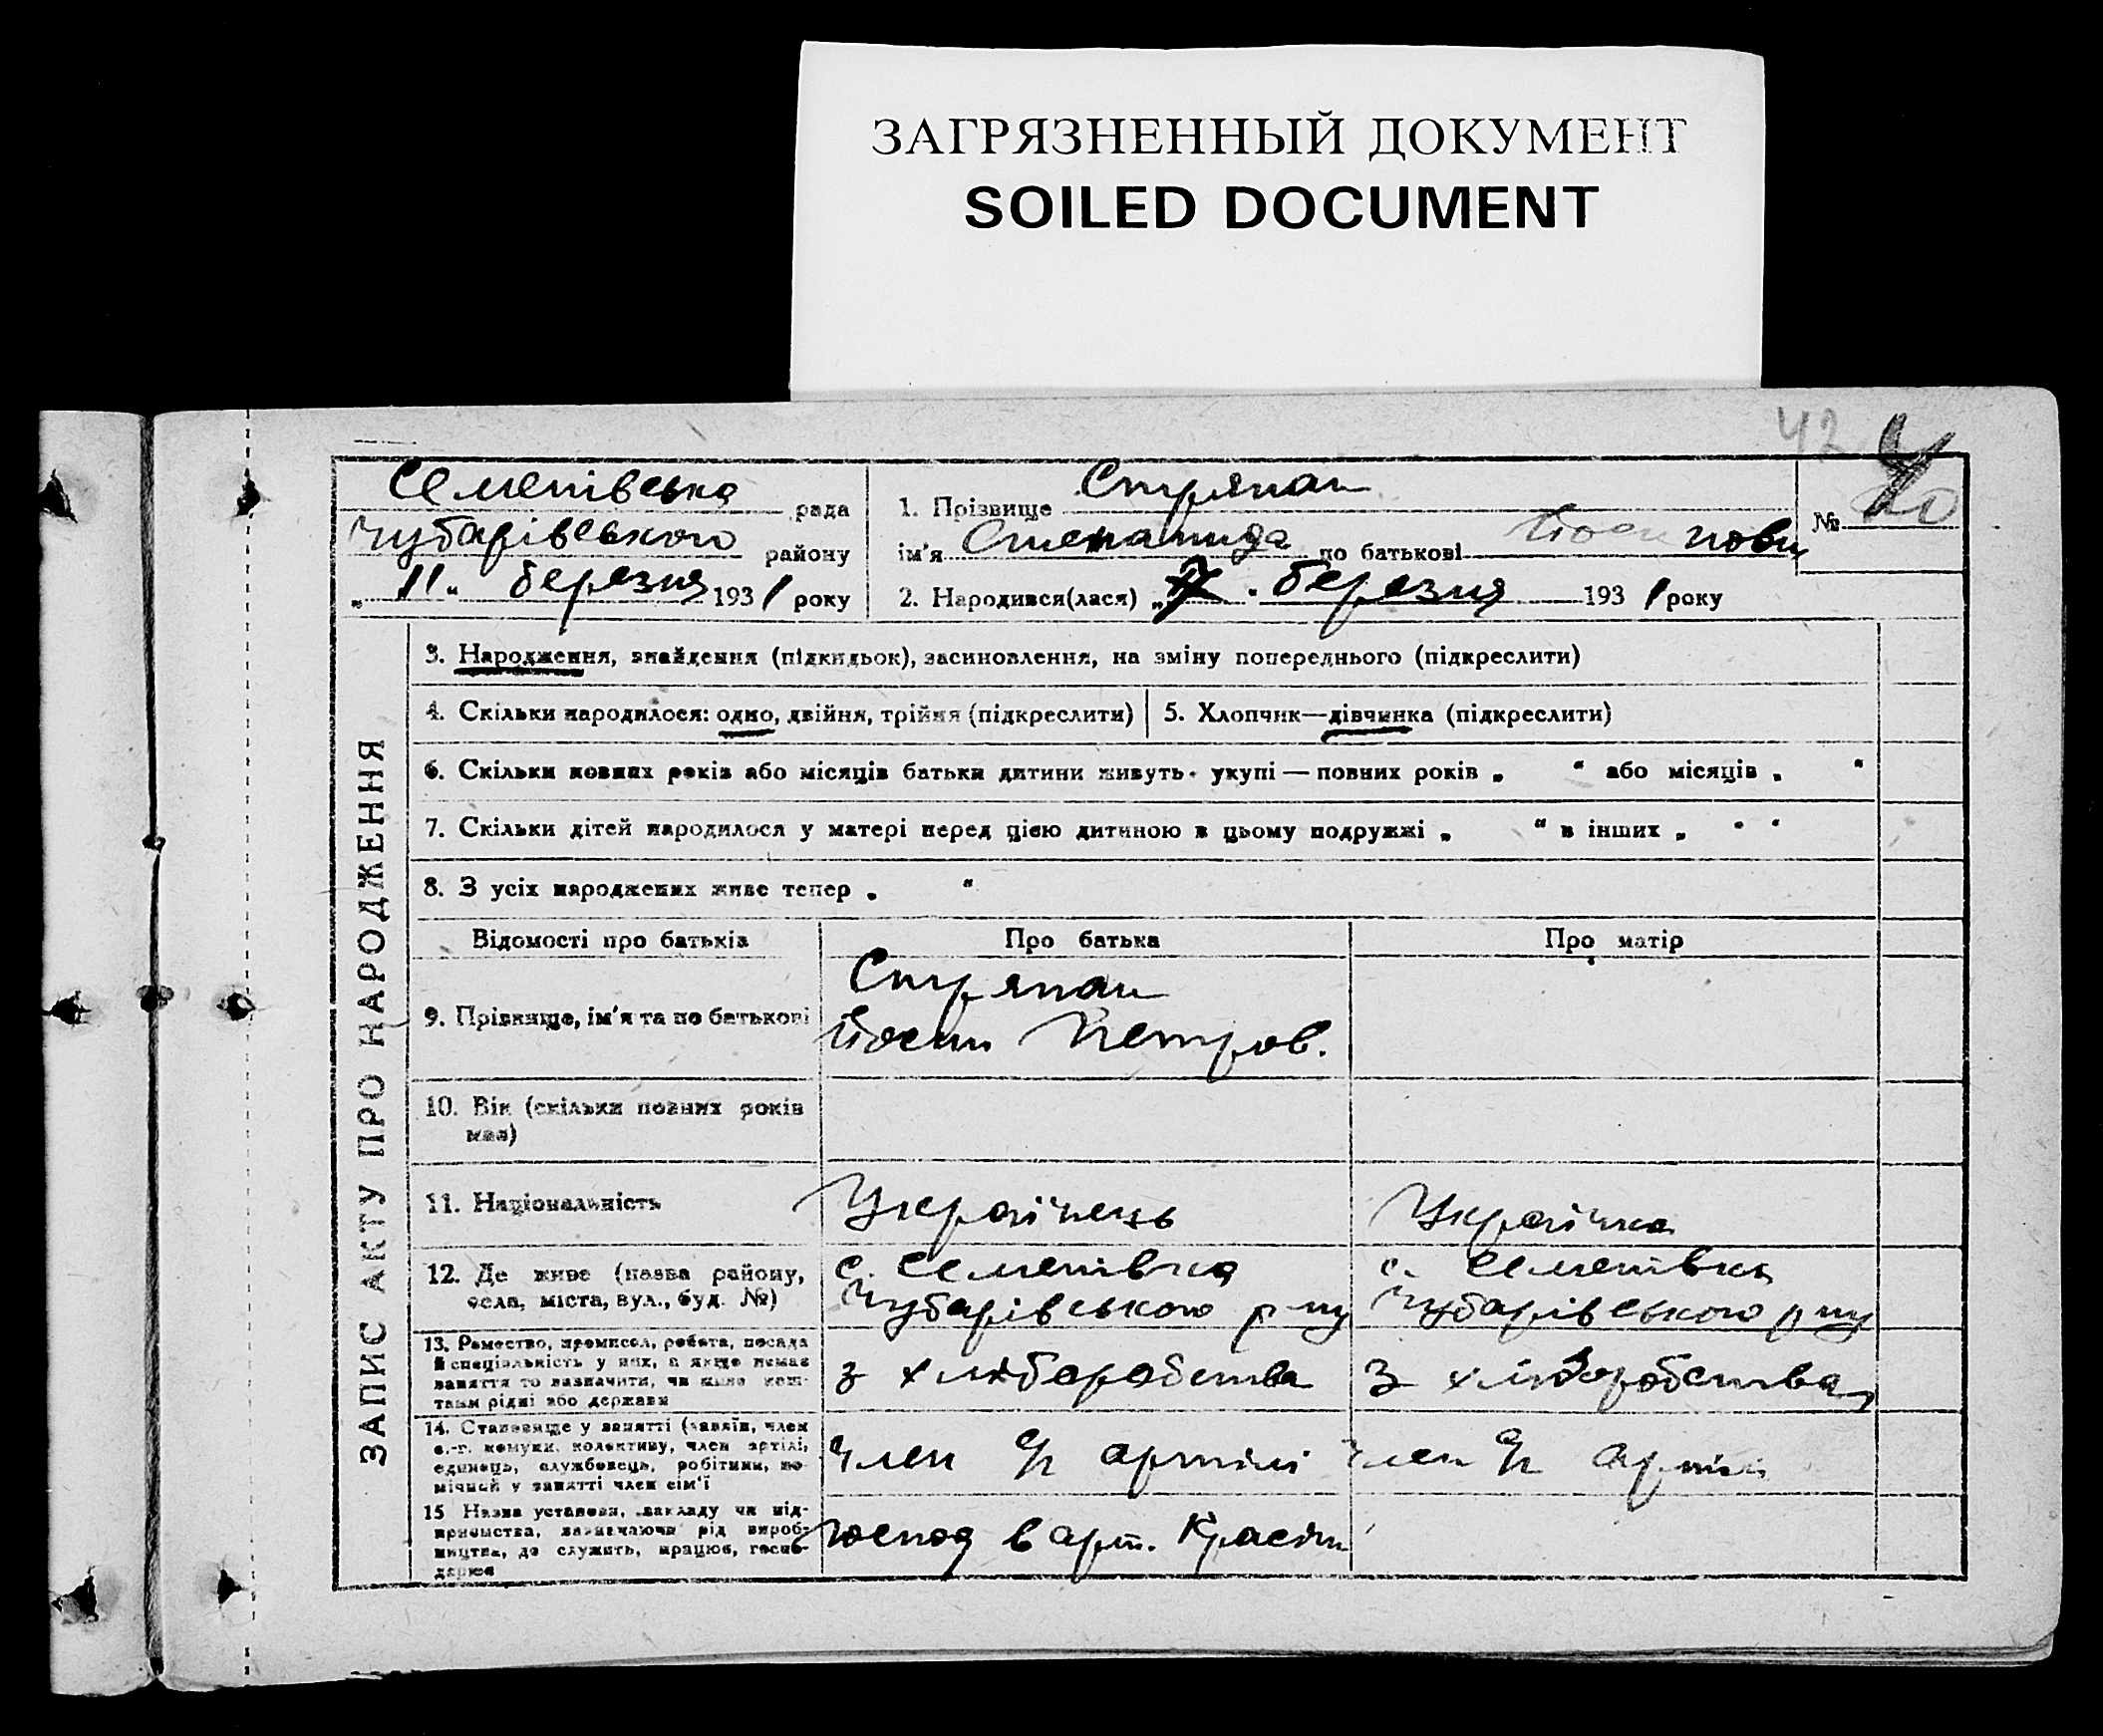 ЗАГРЯЗНЕННЫЙ ДОКУМЕНТ
SOILED DOCUMENT
42
Семенівська рада
Чубарівського району
„ 11 “ березня 1931 року
1. Прізвище Стряпан
ім'я Степанида по батькові Йосиповн
№
2. Народився(лася) „ 7 “ березня 1931 року
ЗАПИС АКТУ ПРО НАРОДЖЕННЯ
3. Народження, знайдення (підкидьок), засиновлення, на зміну попереднього (підкреслити)
4. Скільки народилося: одно, двійня, трійня (підкреслити)
5. Хлопчик—дівчинка (підкреслити)
6. Скільки повних років або місяців батьки дитини живуть укупі — повних років „ “ або місяців „ “
7. Скільки дітей народилося у матері перед цією дитиною в цьому подружжі „ “ в інших „ “
8. З усіх народжених живе тепер „ “
Відомості про батьків
Про батька
Про матір
9. Прізвище, ім'я та по батькові
Стряпан
Йосип Петров.
10. Вік (скільки повних років має)
11. Національність
Українець
Українка
12. Де живе (назва району, села, міста, вул., буд. №)
с. Семенівка
Чубарівського р-ну
с. Семенівка
Чубарівського р-ну
13. Ремество, промисел, робота, посада й спеціальність у них, а якщо немає заняття то зазначити, чи живе коштами рідні або держави
з хліборобства
З хліборобства
14. Становище у занятті (хазяїн, член с.-г. комуни, колективу, член артілі, одинець, службовець, робітник, помічний у занятті член сім'ї
член артілі
член артілі
15 Назва установи, закладу чи підприємства, зазначаючи рід виробництва, де служить, працює, господарює
господ в арт.